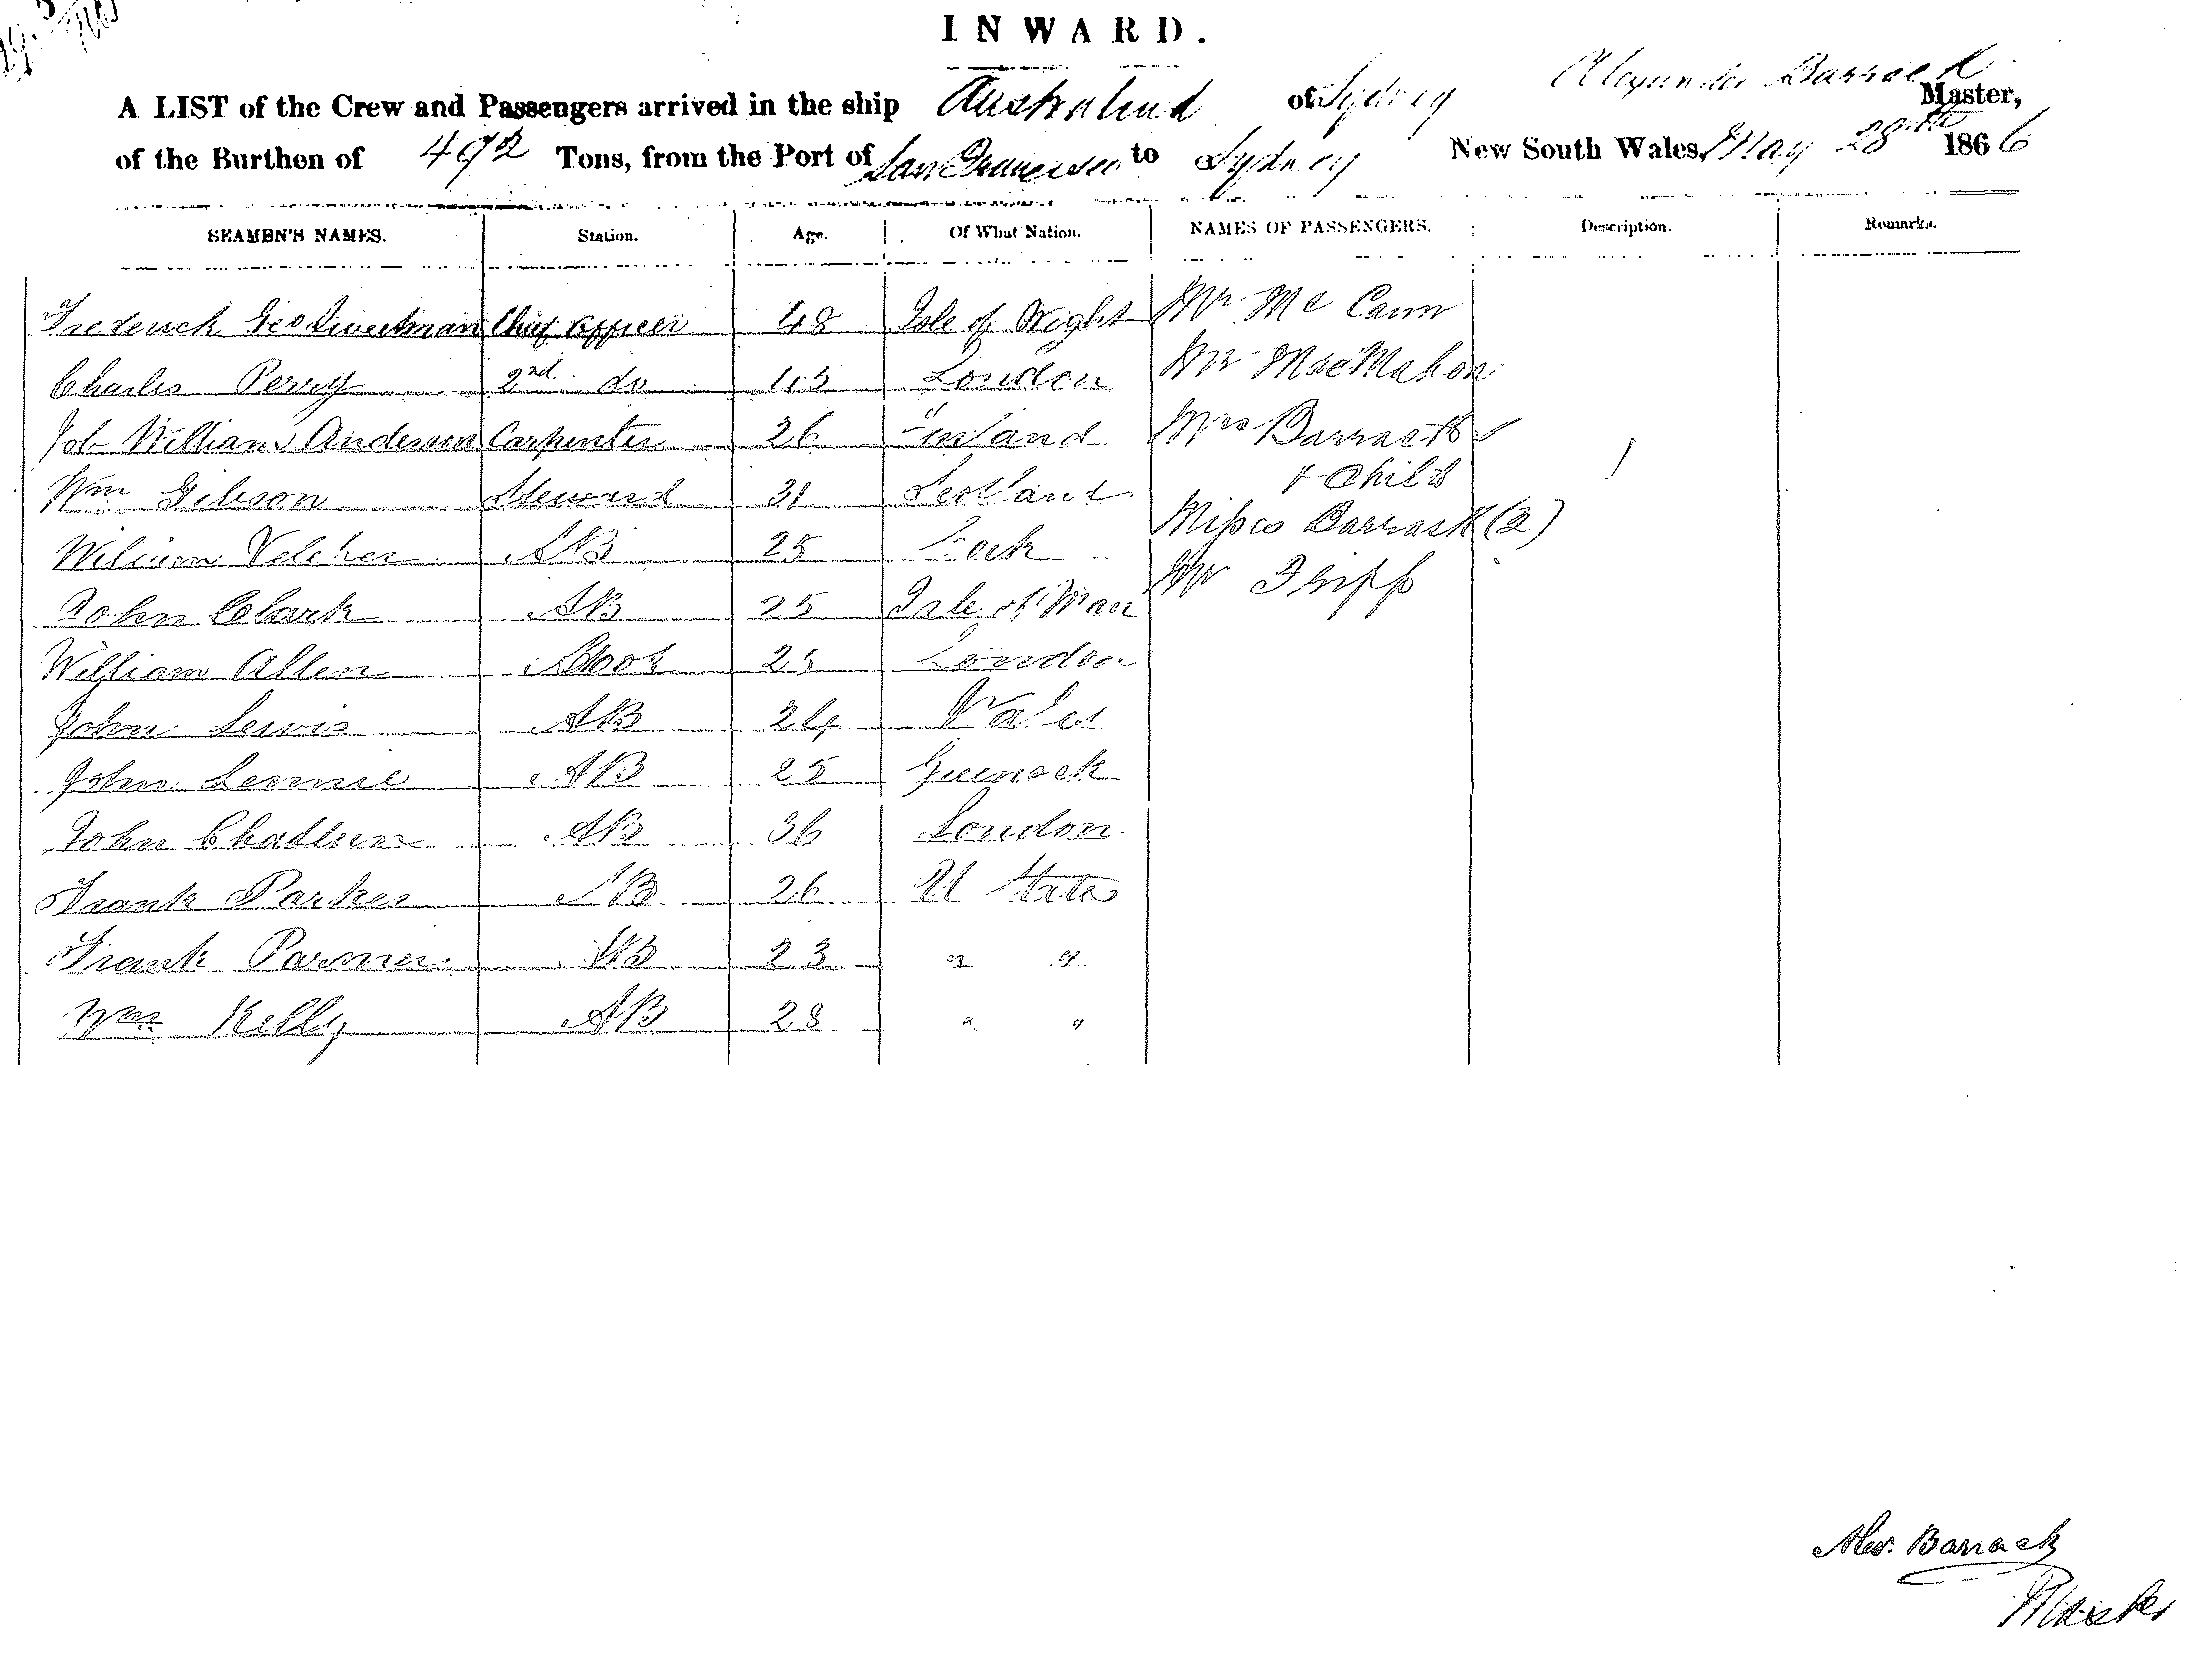 INWARD.
Alexander Barrack
A LIST of the Crew and Passengers arrived in the ship Australind of Sydney Master,
of the Burthen of 492 Tons, from the Port of San Francisco to Sydney New South Wales May 28th 1866
SEAMEN'S NAMES. Station. Age. Of What Nation. NAMES OF PASSENGERS. Description. Remarks.
Frederick Geo Chief Officer 48 Isle of Wight Mr Mc Cann
Charles Perry 2nd do 45 London Mr MacMahon
Job William Anderson Carpenter 26 Finland Mrs Barrack
& Child
Wm Gibson Steward 31 Scotland
Misses Barrack (2)
William AB 25 Cork
Mr Tripp
John Clark AB 25 Isle of Man
William Allen Cook 25 London
John Lewis AB 24 Wales
John Lennie AB 25 Greenock
John AB 36 London
Frank Parker AB 26 U States
Frank Parmer AB 23 " "
Wm Kelly AB 28 " "
Alex. Barrack
Master